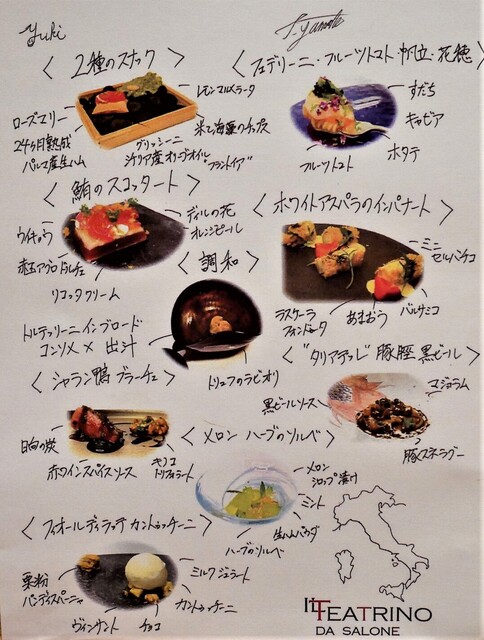 Yuki
〈 2種のスナック 〉
レモンマルメラータ
ローズマリー
24ヶ月熟成
パルマ産生ハム
グリッシーニ
シチリア産オリーブオイル
米と海藻のチップス
〈 フェデリーニ・フルーツトマト・帆立・花穂 〉
すだち
キャビア
ホタテ
フルーツトマト
〈 鮪のスコッタート 〉
ウイキョウ
ディルの花
オレンジピール
リコッタクリーム
〈 ホワイトアスパラのインパナート 〉
ミニ
セルバチコ
バルサミコ
あまおう
〈 調和 〉
トルテッリーニ インブロード
コンソメ × 出汁
トリュフのラビオリ
〈 "タリアテッレ" 豚脛 黒ビール 〉
マジョラム
黒ビールソース
豚スネラグー
〈 シャラン鴨 ブラーチェ 〉
日向の炭
赤ワインスパイスソース
キノコ
トリフォラート
〈 メロン ハーブのソルベ 〉
メロン
シロップ漬け
ミント
生ハムパウダ
ハーブのソルベ
〈 フィオールディラッテ カントゥッチーニ 〉
栗粉
パンディスパーニャ
ミルクジェラート
カントゥッチーニ
ヴィンサント
チョコ
IL TEATRINO
DA SALONE